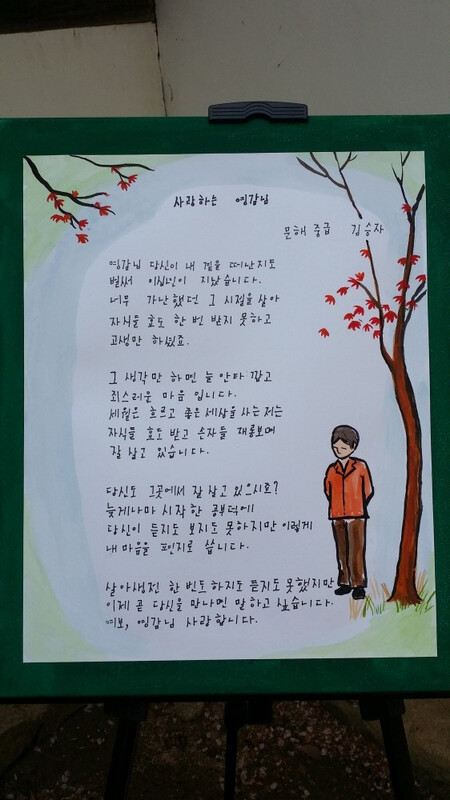 사랑하는 영감님
문해 중급 김승자
영감님 당신이 내 곁을 떠난지도
벌써 이십년이 지났습니다.
너무 가난했던 그 시절을 살아
자식들 효도 한 번 받지 못하고
고생만 하셨죠.
그 생각만 하면 늘 안타 깝고
죄스러운 마음 입니다.
세월은 흐르고 좋은세상을 사는 저는
자식들 효도 받고 손자들 재롱보며
잘 살고 있습니다.
당신도 그곳에서 잘 살고 있으시죠?
늦게나마 시작한 공부덕에
당신이 듣지도 보지도 못하지만 이렇게
내 마음을 편지로 씁니다.
살아생전 한 번도 하지도 듣지도 못했지만
이제 곧 당신을 만나면 말하고 싶습니다.
여보, 영감님 사랑합니다.